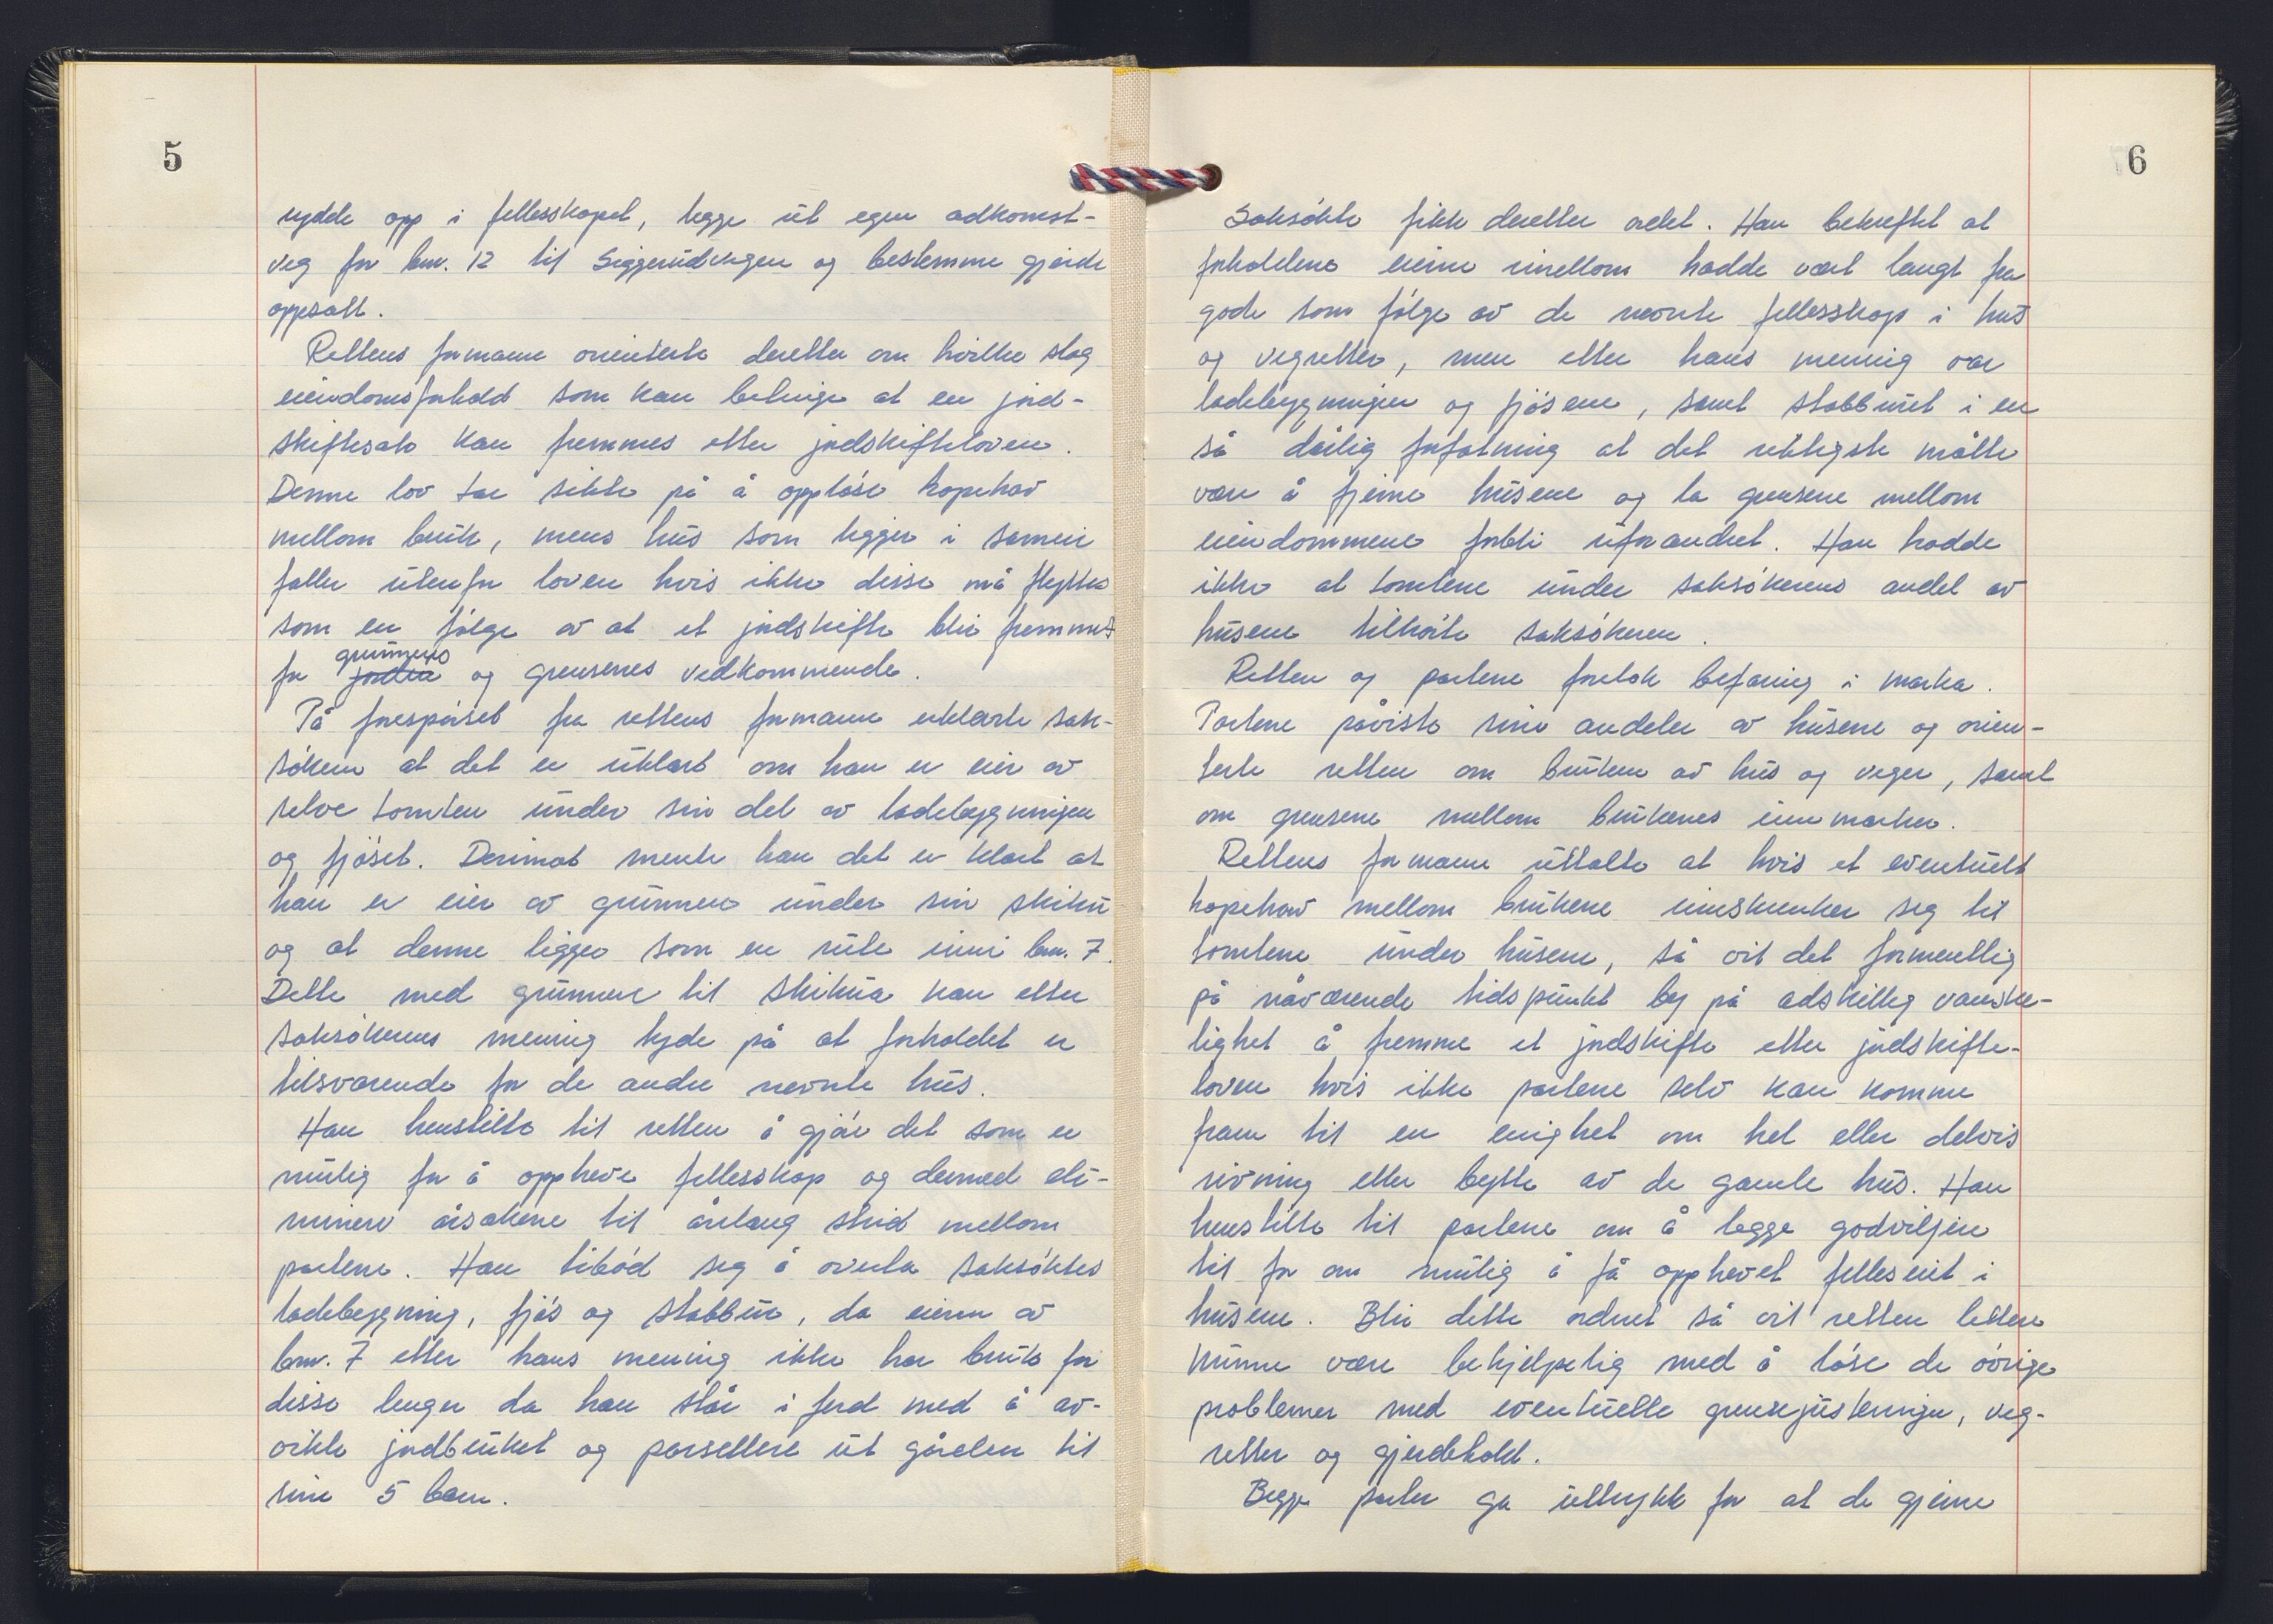 5
rydde opp i fellesskapet, legge ut egen adkomst-
veg for bnr. 12 til Siggerudvegen og bestemme gjerde
oppsatt.
Rettens formann orienterte deretter om hvilke slag
eiendomsforhold som kan betinge at en jord-
skiftesak kan fremmes etter jordskifteloven.
Denne lov tar sikte på å oppløse hopehav
mellom bruk, mens hus som ligger i sameie
faller utenfor loven hvis ikke disse må flyttes
som en følge av at et jordskifte blir fremmet
grunnens
for jorden og grensenes vedkommende.
På forespørsel fra rettens formann erklærte sak-
søkeren at det er uklart om han er eier av
selve tomten under sin del av ladebygningen
og fjøset. Derimot mente han det er klart at
han er eier av grunnen under sin skiku
og at denne ligger som en rute inni bnr. 7.
Dette med grunnen til skikua kan etter
saksøkerens mening tyde på at forholdet er
tilsvarende for de andre nevnte hus.
Han henstilte til retten å gjøre det som er
mulig for å oppheve fellesskap og dermed eli-
minere årsakene til årelang strid mellom
partene. Han tilbød seg å overta saksøktes
ladebygning, fjøs og stabbur, da eieren av
bnr. 7 etter hans mening ikke har bruk for
disse lenger da han står i ferd med å av-
vikle jordbruket og parsellere ut gården til
sine 5 barn.
6
Saksøkte fikk deretter ordet. Han bekreftet at
forholdene eierne imellom hadde vært langt fra
gode som følge av de nevnte fellesskap i hus
og vegretter, men etter hans mening var
ladebygningen og fjøsene, samt stabburet i en
så dårlig forfatning at det riktigste måtte
være å fjerne husene og la grensene mellom
eiendommene forbli uforandret. Han trodde
ikke at tomtene under saksøkerens andel av
husene tilhørte saksøkeren.
Retten og partene foretok befaring i marka.
Partene påviste sine andeler av husene og orien-
terte retten om bruken av hus og veger, samt
om grensene mellom brukenes innmarker.
Rettens formann uttalte at hvis et eventuelt
hopehav mellom brukene innskrenker seg til
tomtene under husene, så vil det formentlig
på nåværende tidspunkt by på adskillig vanske-
lighet å fremme et jordskifte etter jordskifte-
loven hvis ikke partene selv kan komme
fram til en enighet om hel eller delvis
rivning eller bytte av de gamle hus. Han
henstilte til partene om å legge godviljen
til for om mulig å få opphevet felleseiet i
husene. Blir dette ordnet så vil retten lettere
kunne være behjelpelig med å løse de øvrige
problemer med eventuelle grensejusteringer, veg-
retter og gjerdehold.
Begge parter ga uttrykk for at de gjerne